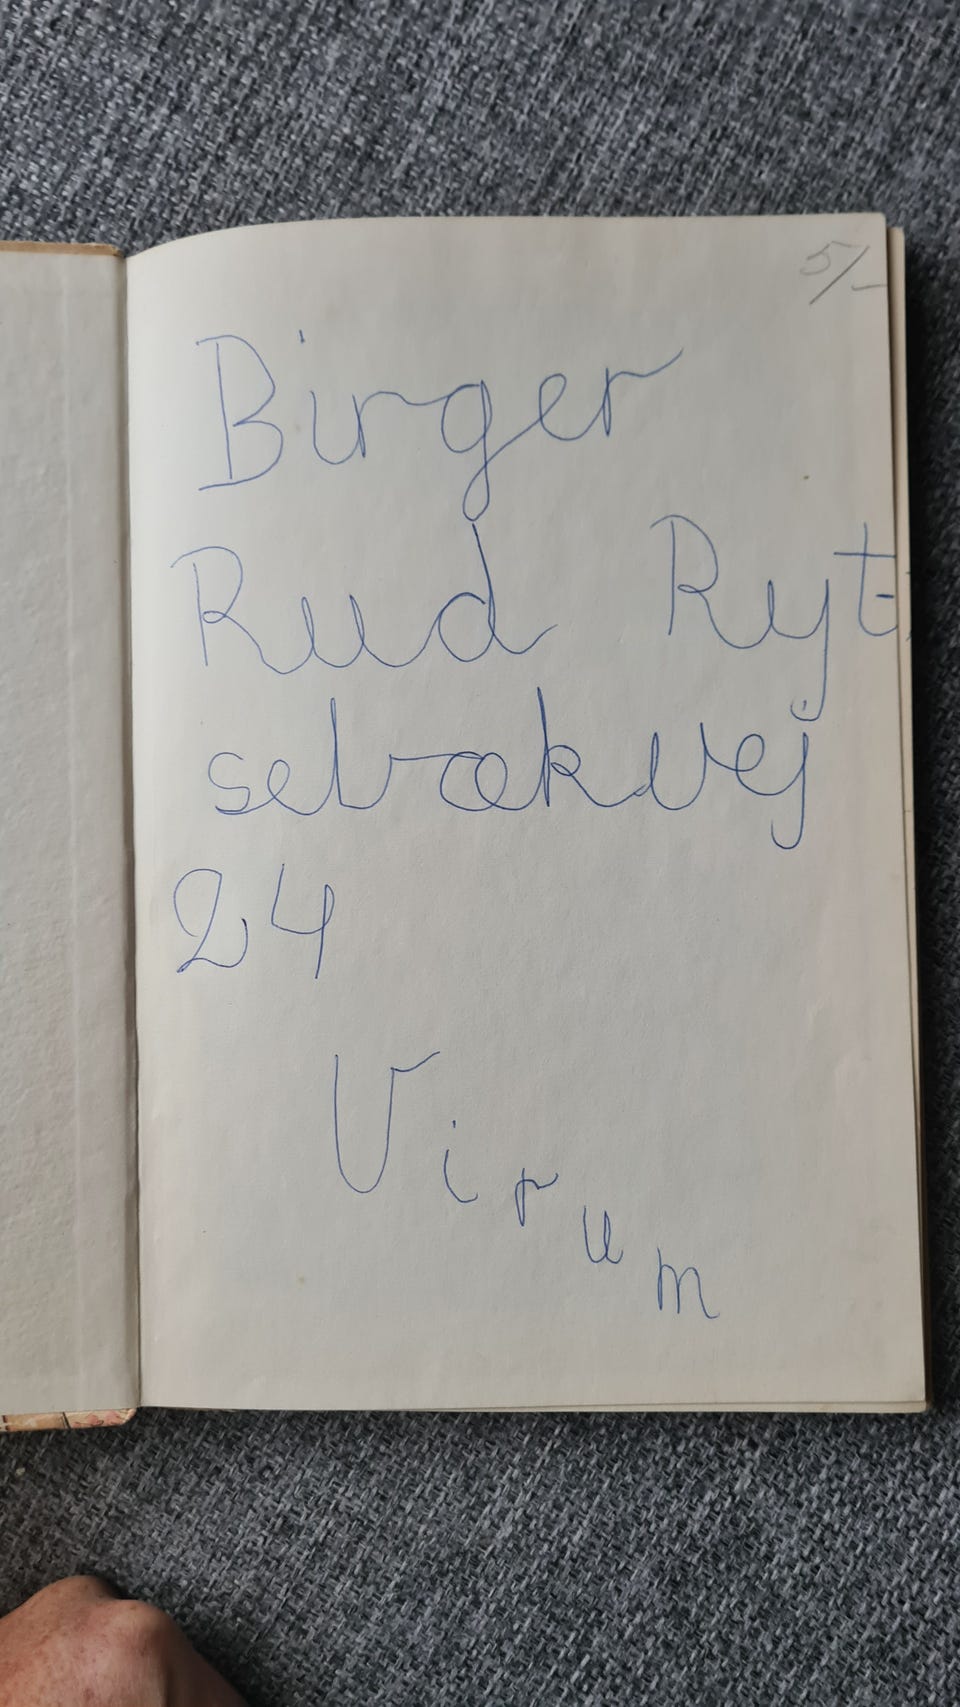 5/-
Birger
Rud Ryt-
sebækvej
24
Virum